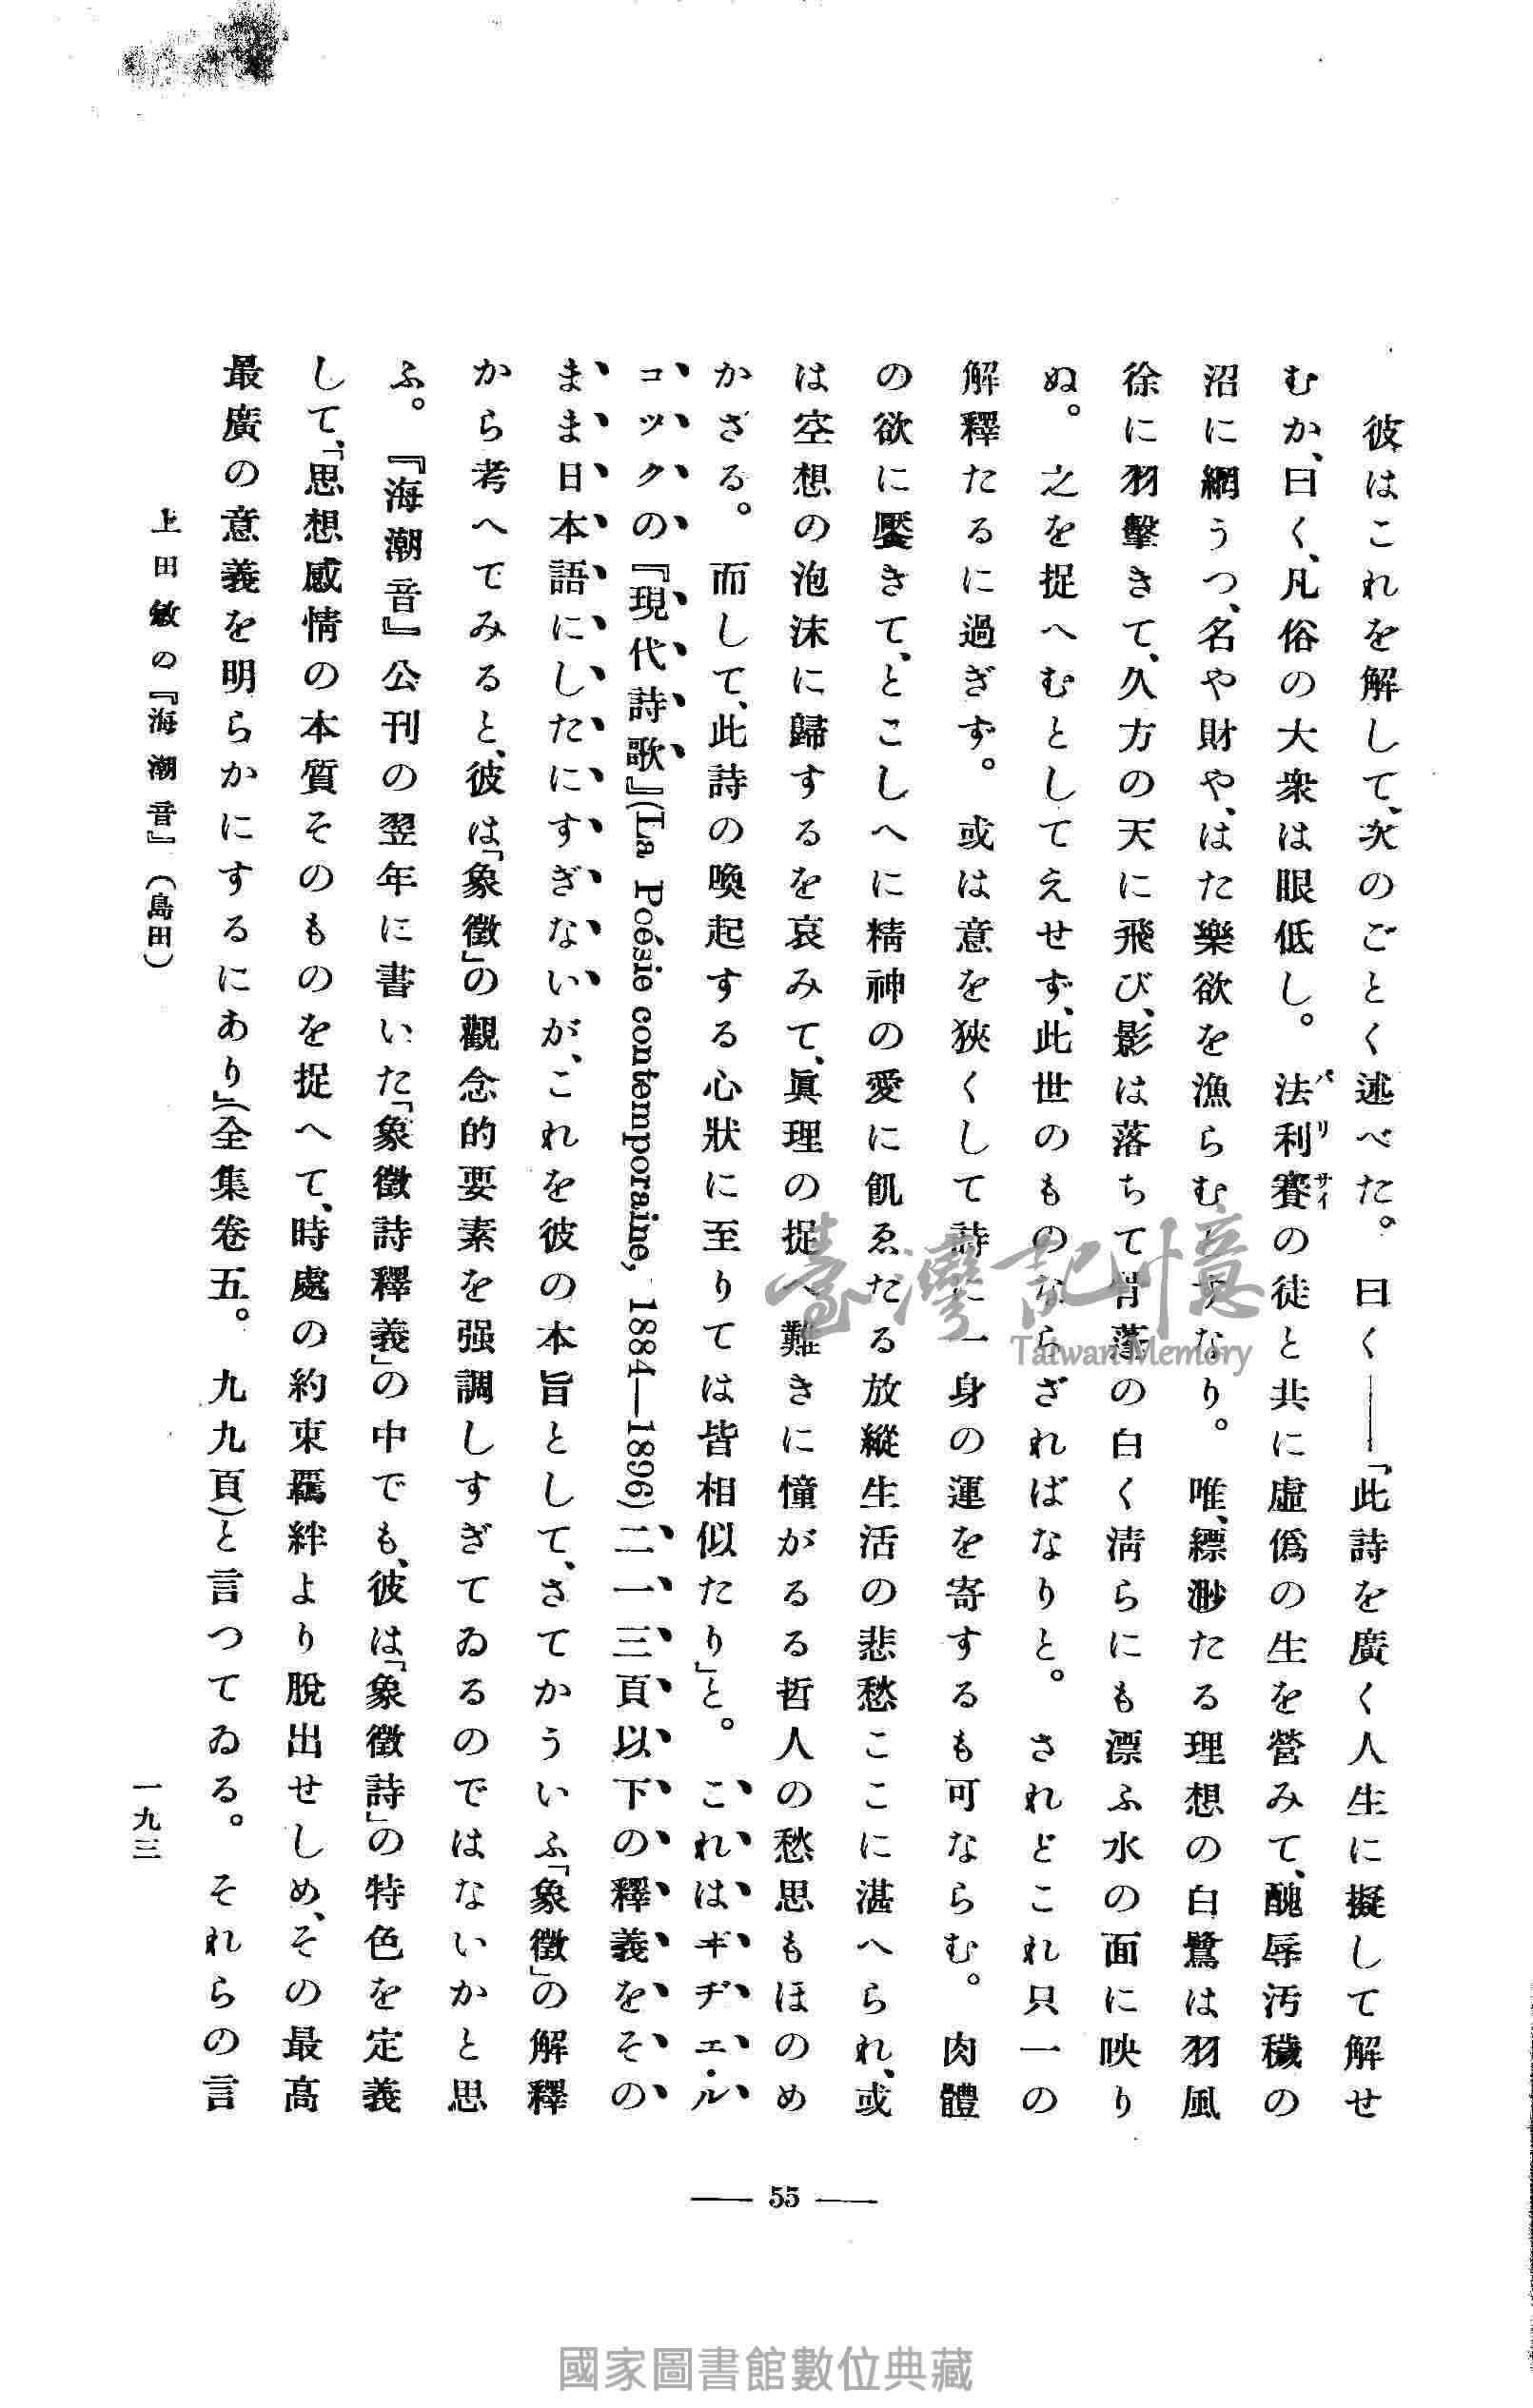 彼はこれを解して、次のごとく述べた。曰く――「此詩を廣く人生に擬して解せ
むか、曰く、凡俗の大衆は眼低し。法利賽の徒と共に虛僞の生を營みて、醜辱汚穢の
パリサイ
沼に網うつ、名や財や、はた樂欲を漁らむとすなり。唯、縹渺たる理想の白鷺は羽風
徐に羽擊きて、久方の天に飛び、影は落ちて骨蓬の白く淸らにも漂ふ水の面に映り
ぬ。之を捉へむとしてえせず、此世のものならざればなりと。されどこれ只一の
解釋たるに過ぎず。或は意を狹くして詩に一身の運を寄するも可ならむ。肉體
の欲に饜きて、とこしへに精神の愛に飢ゑたる放縱生活の悲愁ここに湛へられ、或
は空想の泡沫に歸するを哀みて、眞理の捉へ難きに憧がるる哲人の愁思もほのめ
かざる。而して、此詩の喚起する心狀に至りては皆相似たり」と。これはギヂエ・ル
コックの『現代詩歌』(La Poésie contemporaine, 1884—1896)二一三頁以下の釋義をその
まま日本語にしたにすぎないが、これを彼の本旨として、さてかういふ「象徵」の解釋
から考へてみると、彼は「象徵」の觀念的要素を强調しすぎてゐるのではないかと思
ふ。『海潮音』公刊の翌年に書いた「象徵詩釋義」の中でも、彼は「象徵詩」の特色を定義
して、「思想感情の本質そのものを捉へて、時處の約束羈絆より脫出せしめ、その最高
最廣の意義を明らかにするにあり」(全集卷五。九九頁)と言つてゐる。それらの言
上田敏の『海潮音』(島田)
一九三
— 55 —
臺灣記憶
Taiwan Memory
國家圖書館數位典藏